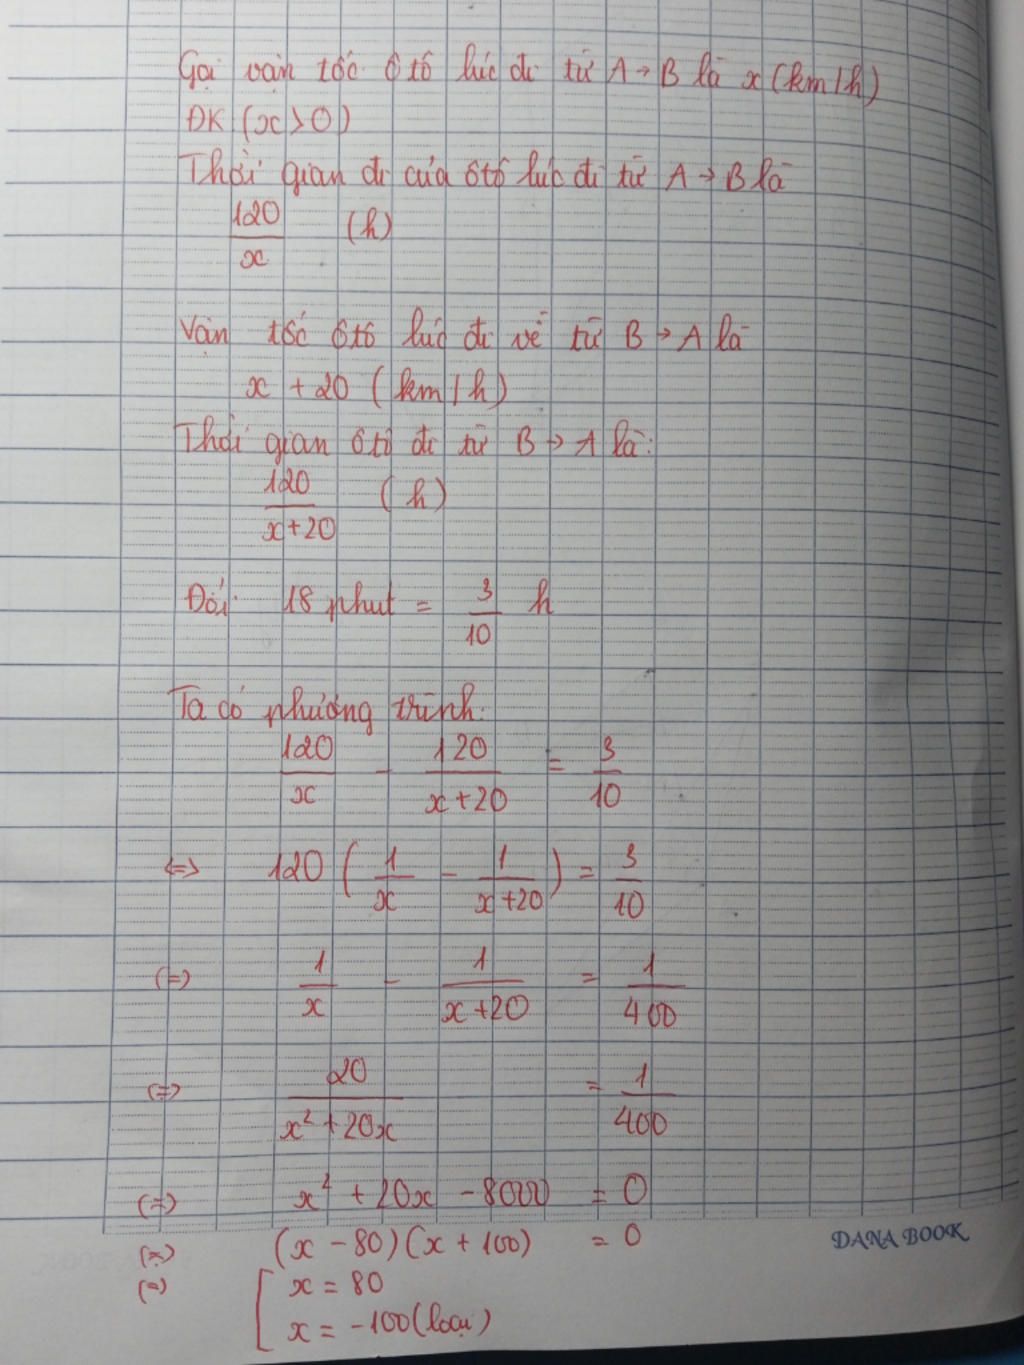 Gọi vận tốc ô tô lúc đi từ A → B là x (km/h)
ĐK (x > 0)
Thời gian đi của ô tô lúc đi từ A → B là
120/x (h)
Vận tốc ô tô lúc đi về từ B → A là
x + 20 (km/h)
Thời gian ô tô đi từ B → A là:
120/(x+20) (h)
Đổi: 18 phut = 3/10 h
Ta có phương trình:
120/x - 120/(x+20) = 3/10
<=> 120 (1/x - 1/(x+20)) = 3/10
(=) 1/x - 1/(x+20) = 1/400
(=) 20/(x² + 20x) = 1/400
(=) x² + 20x - 8000 = 0
(=) (x - 80)(x + 100) = 0
(=) [ x = 80
x = -100 (loại)
DANA BOOK